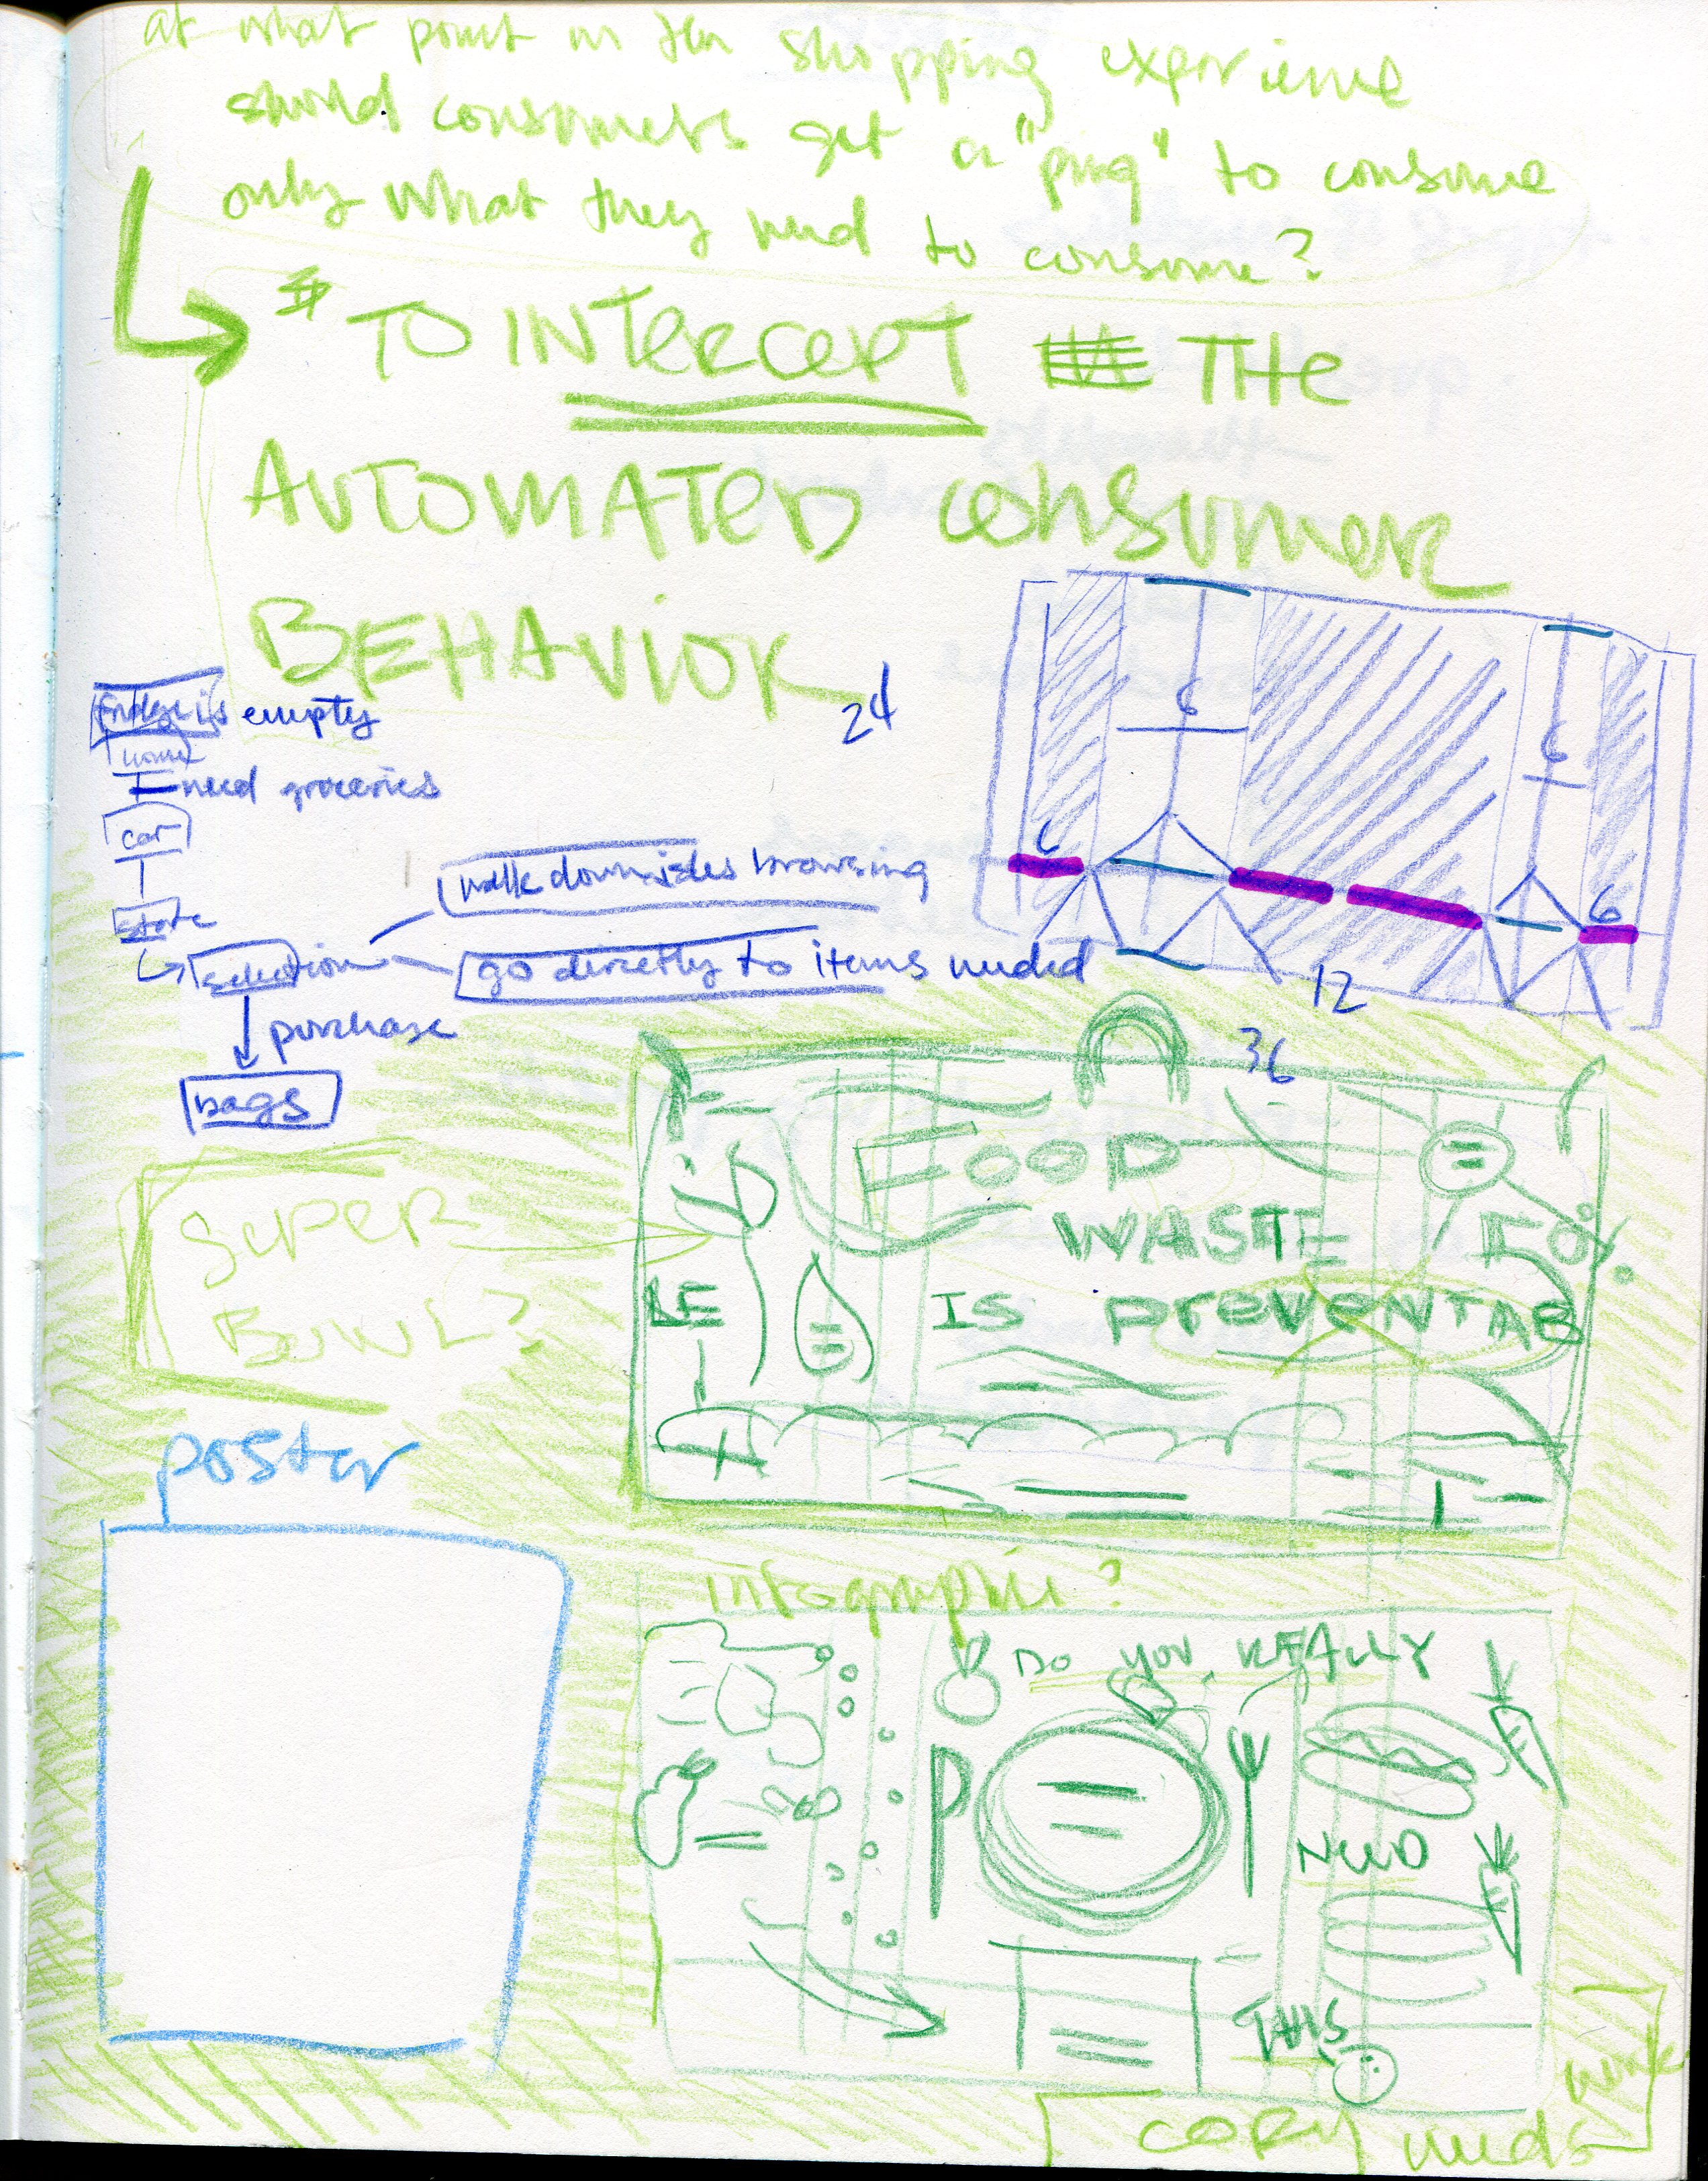 at what point in the shopping experience
should consumers get a "ping" to consume
only what they need to consume?
TO INTERCEPT THE
AUTOMATED CONSUMER
BEHAVIOR
fridge is empty
home
need groceries
car
store
selection
walk down isles browsing
go directly to items needed
purchase
bags
24
6
6
6
6
12
36
SUPER
BOWL?
FOOD
WASTE
50%
IS PREVENTAB
LE
poster
infographic?
DO YOU REALLY
NEED
THIS
COPY needs